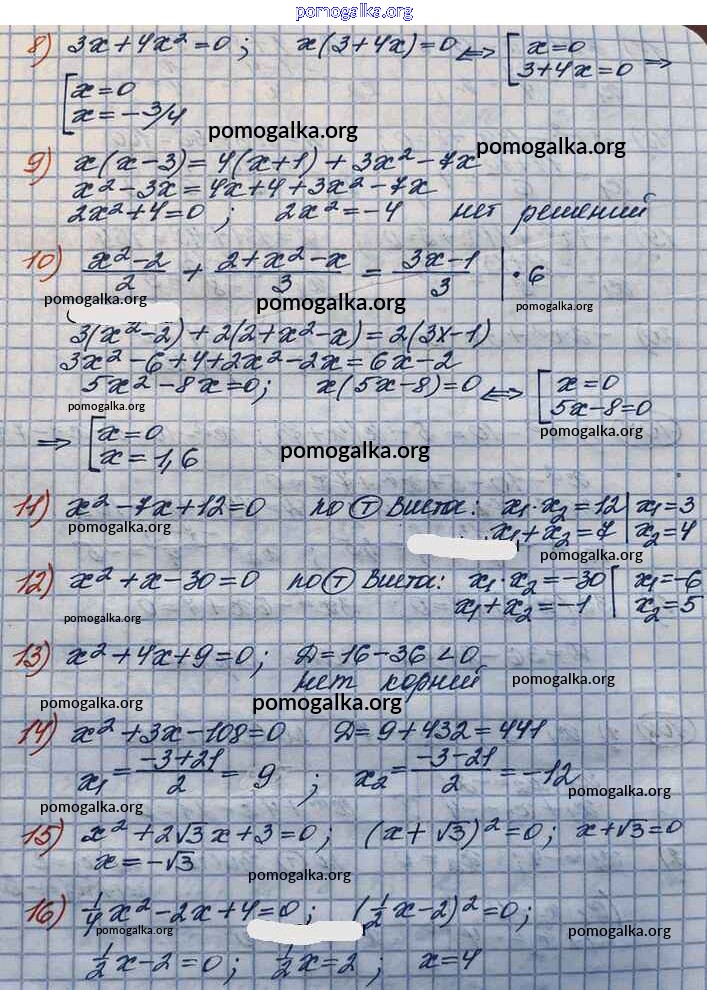 pomogalka.org
8) 3x+4x²=0; x(3+4x)=0 ⟺ [x=0
3+4x=0 ⇒
[x=0
x=-3/4
pomogalka.org
pomogalka.org
9) x(x-3)=4(x+1)+3x²-7x
x²-3x=4x+4+3x²-7x
2x²+4=0; 2x²=-4 нет решений
10) (x²-2)/2 + (2+x²-x)/3 = (3x-1)/3 | ·6
pomogalka.org pomogalka.org pomogalka.org
3(x²-2)+2(2+x²-x)=2(3x-1)
3x²-6+4+2x²-2x=6x-2
5x²-8x=0; x(5x-8)=0 ⟺ [x=0
5x-8=0
pomogalka.org
pomogalka.org
⇒ [x=0
x=1,6
pomogalka.org
11) x²-7x+12=0 по Т Виета: x₁·x₂=12 | x₁=3
x₁+x₂=7 | x₂=4
pomogalka.org
pomogalka.org
12) x²+x-30=0 по Т Виета: x₁·x₂=-30 [x₁=-6
x₁+x₂=-1 [x₂=5
pomogalka.org
13) x²+4x+9=0; Д=16-36<0
нет корний
pomogalka.org
pomogalka.org pomogalka.org
14) x²+3x-108=0 Д=9+432=441
x₁=(-3+21)/2=9; x₂=(-3-21)/2=-12
pomogalka.org
pomogalka.org
15) x²+2√3x+3=0; (x+√3)²=0; x+√3=0
x=-√3
pomogalka.org
16) 1/4x²-2x+4=0; (1/2x-2)²=0;
pomogalka.org pomogalka.org
1/2x-2=0; 1/2x=2; x=4